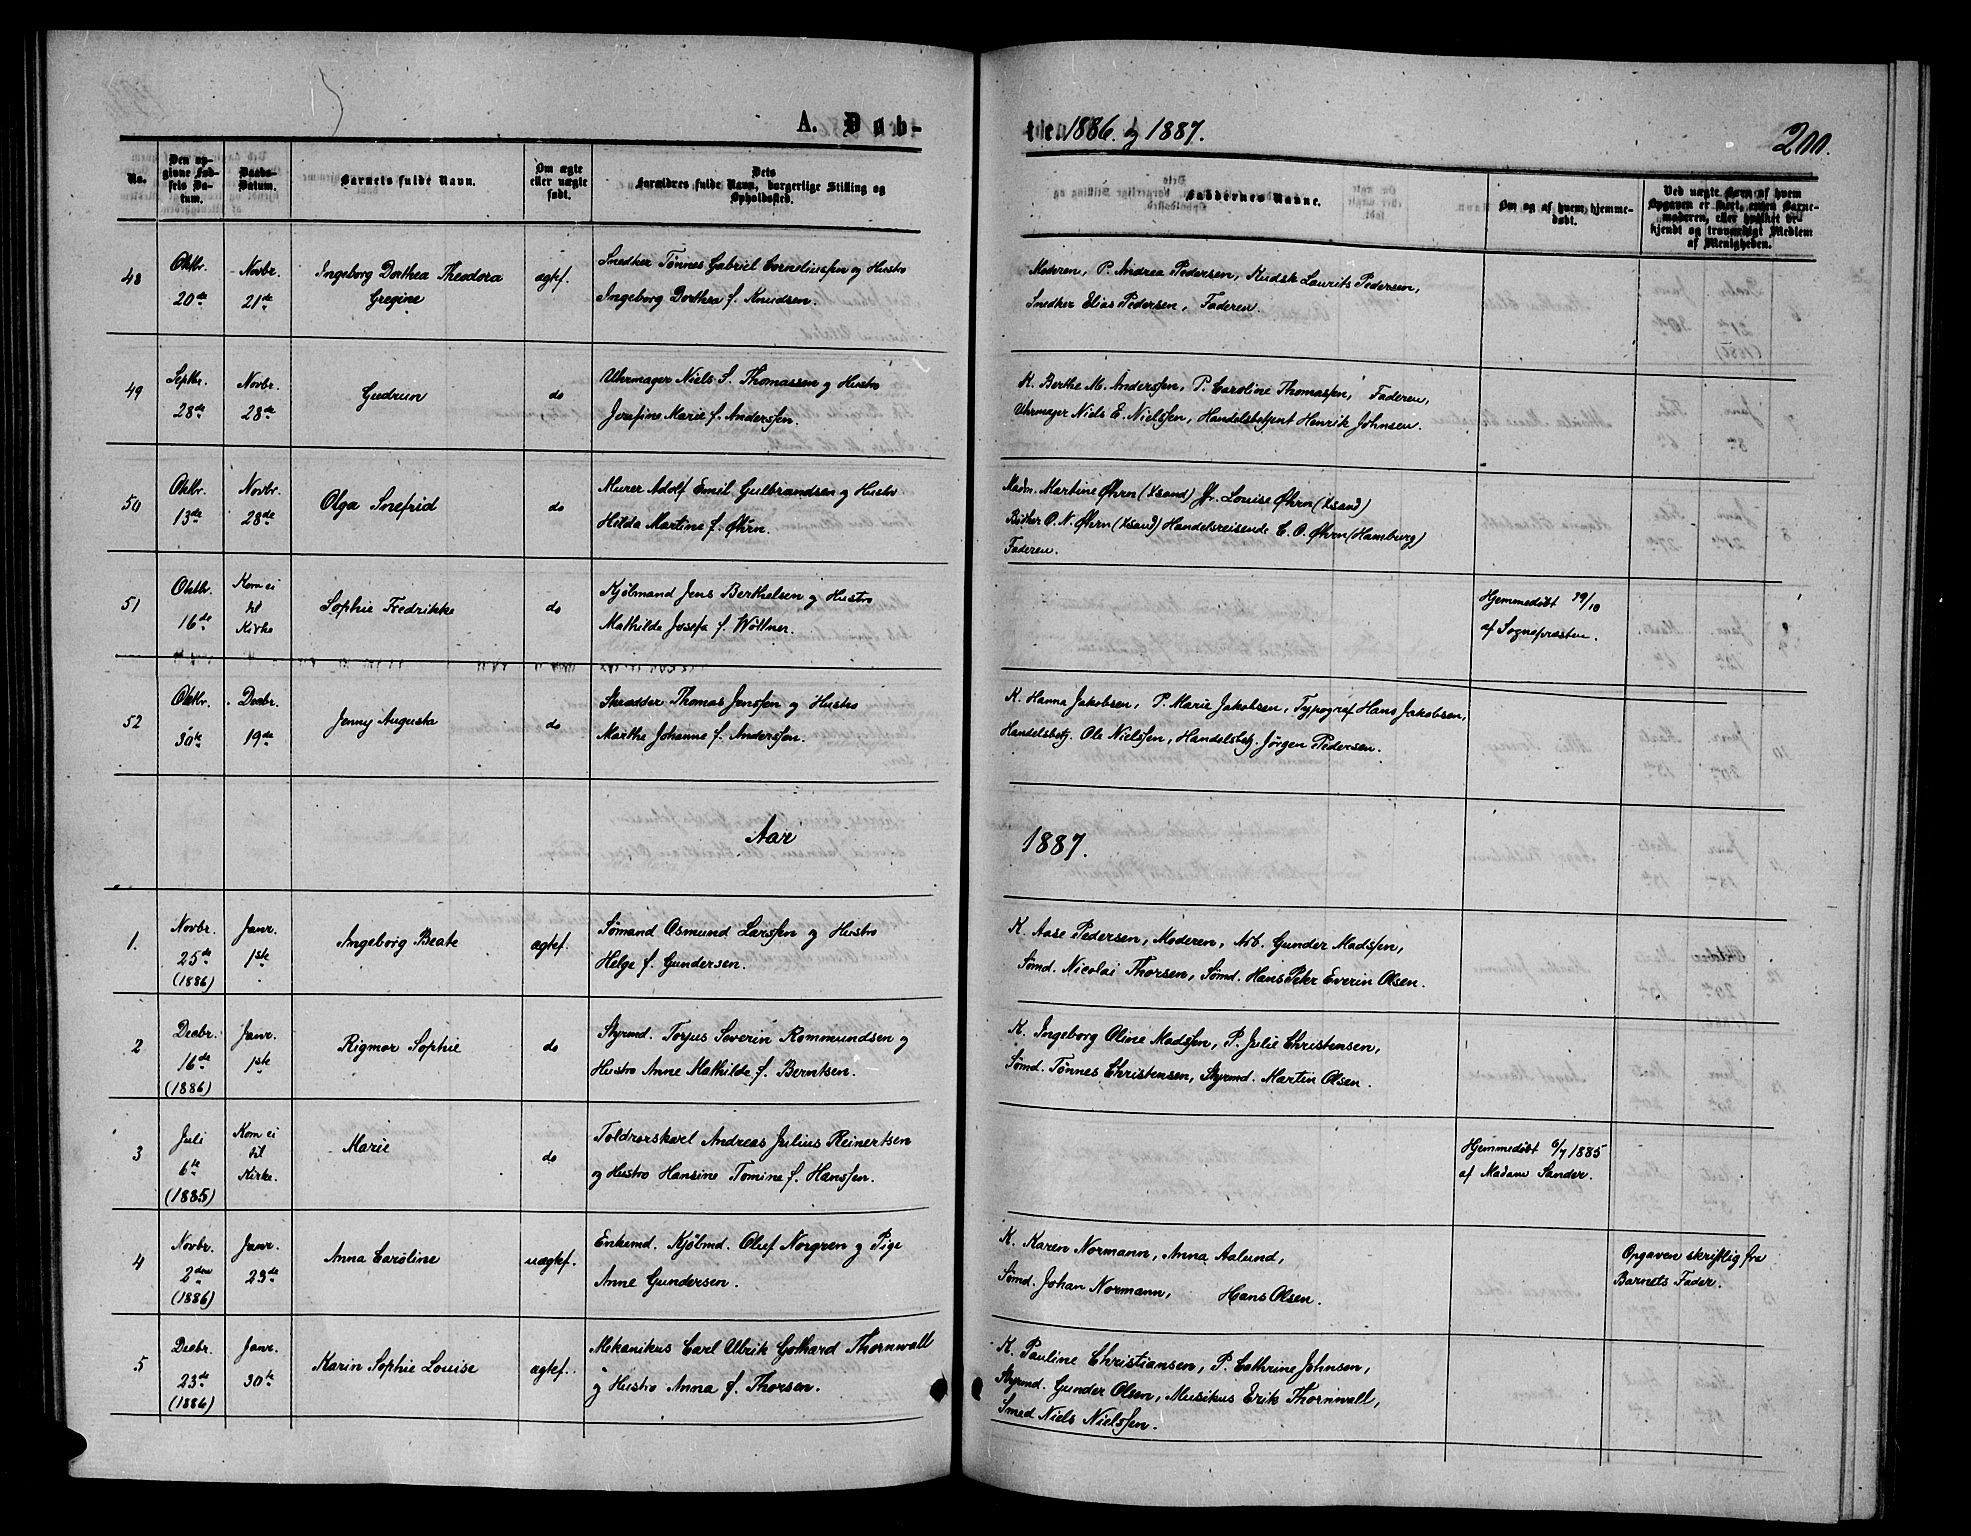 A. Døb-
te i 1886. og 1887.
200.
No.
Den op-
givne Fød-
sels Da-
tum.
Daabs-
Datum.
Barnets fulde Navn.
Om ægte
eller uægte
født.
Dets
Forældres fulde Navn, borgerlige Stilling og
Opholdssted.
Faddernes Navne.
Om og af hvem hjemme-
døbt.
Ved uægte Børn af hvem
Opgaven er skeet, enten Barne-
moderen, eller hvilket be-
kjendt og troværdigt Medlem
af Menigheden.
48
Oktbr.
20de
Novbr.
21de
Ingeborg Dorthea Theodora
Gregine
ægtef.
Snedker Tønnes Gabriel Corneliussen og Hustro
Ingeborg Dorthea f. Knudsen.
Moderen, P. Andrea Pedersen, Kudsk Laurits Pedersen,
Snedker Elias Pedersen, Faderen.
49
Septbr.
28de
Novbr.
28de
Gudrun
do
Uhrmager Niels S. Thomassen og Hustro
Josefine Marie f. Anderssen.
K. Berthe M. Anderssen, P. Caroline Thomassen, Faderen,
Uhrmager Niels E. Nielssen, Handelsbetjent Henrik Johnsen.
50
Oktbr.
13de
Novbr.
28de
Olga Snefrid
do
Murer Adolf Emil Gulbrandsen og Hustro
Hilda Martine f. Øhrn.
Madm. Martine Øhrn (Xsand) Fr. Louise Øhrn (Xsand)
Bødker O. N. Øhrn (Xsand) Handelsreisende C. O. Øhrn (Hamburg)
Faderen.
51
Oktbr.
16de
Kom ei
til
Kirke
Sophie Fredrikke
do
Kjølmand Jens Berthelsen og Hustro
Mathilde Josefa f. Wöllner.
Hjemmedøbt 29/10
af Sognepræsten.
52
Oktbr.
30te
Decbr.
19de
Jenny Augusta
do
Skrædder Thomas Jenssen og Hustro
Marthe Johanne f. Anderssen.
K. Hanna Jakobsen, P. Marie Jakobsen, Typograf Hans Jakobsen,
Handelsbetj. Ole Nielssen, Handelsbetj. Jørgen Pedersen.
Aar
1887.
1.
Novbr.
25de
(1886)
Janr.
1ste
Ingeborg Beate
ægtef.
Sømand Osmund Larssen og Hustro
Helge f. Gundersen.
K. Aase Pedersen, Moderen, Arb. Gunder Madssen,
Sømd. Nicolai Thorsen, Sømd. Hans Peter Everin Olsen.
2
Decbr.
16de
(1886)
Janr.
1ste
Rigmor Sophie
do
Styrmd. Torjus Severin Rommundsen og
Hustro Anne Mathilde f. Berntsen.
K. Ingeborg Oline Madssen, P. Julie Christensen,
Sømd. Tønnes Christensen, Styrmd. Martin Olsen.
3
Juli
6te
(1885)
Kom ei
til
Kirke.
Marie
do
Toldrorskarl Andreas Julius Reinertsen
og Hustro Hansine Tomine f. Hanssen.
Hjemmedøbt 6/7 1885
af Madame Sander.
4
Novbr.
2den
(1886)
Janr.
23de
Anna Caroline
uægtef.
Enkemd. Kjøbmd. Oluf Norgren og Pige
Anne Gundersen.
K. Karen Normann, Anna Aalund,
Sømd. Johan Normann, Hans Olsen.
Opgaven skriftlig fra
Barnets Fader.
5
Decbr.
23de
(1886)
Janr.
30te
Karin Sophie Louise
ægtef.
Mekanikus Carl Ulrik Gothard Thornwall
og Hustro Anna f. Thorsen.
K. Pauline Christiansen, P. Cathrine Johnsen,
Styrmd. Gunder Olsen, Musikus Erik Thornwall,
Smed Niels Nielssen.